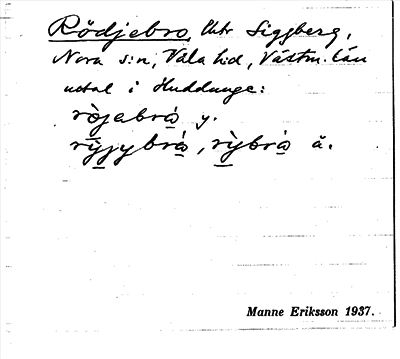 Rödjebro, Utr Siggberg,
Nora s:n, Våla h:d, Västm. län
uttal i Huddunge:
rö̀jebró y.
rỳjybró, rỳbró ä.
Manne Eriksson 1937.